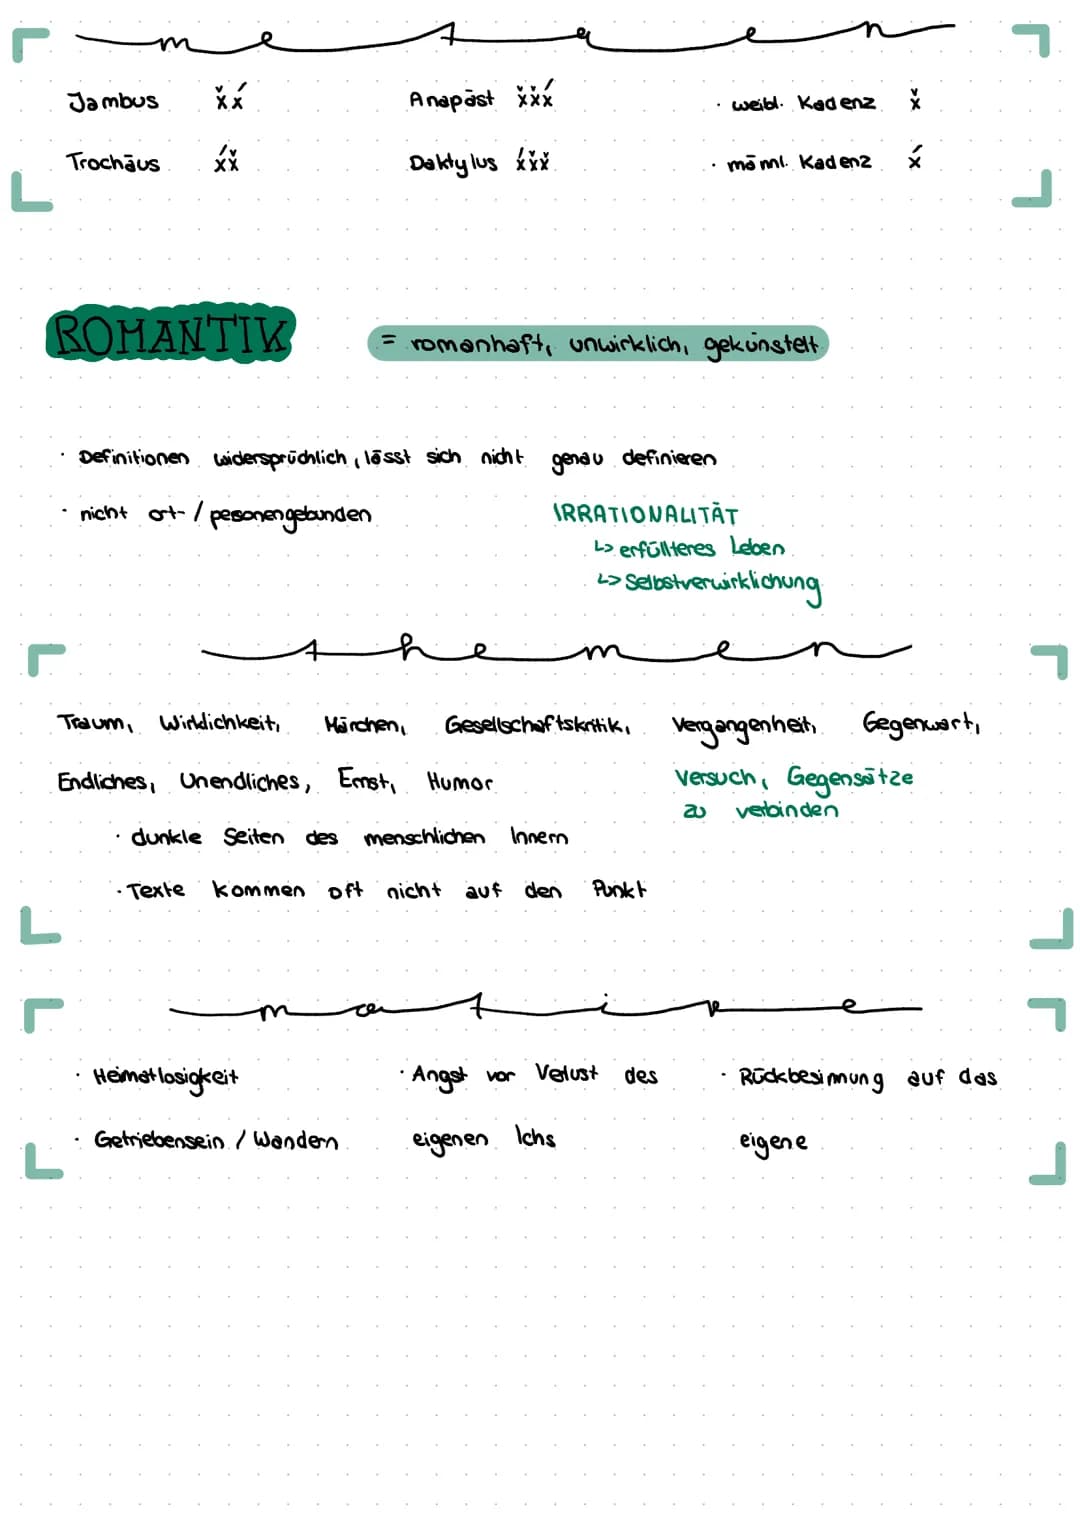 metren
Jambus x̌x́ Anapäst x̌x̌x́ · weibl. Kadenz x̌
Trochäus x́x̌ Daktylus x́x̌x̌ · männl. Kadenz x́
ROMANTIK = romanhaft, unwirklich, gekünstelt
· Definitionen widersprüchlich, lässt sich nicht genau definieren
· nicht ort-/personengebunden IRRATIONALITÄT
↳ erfüllteres Leben
↳ Selbstverwirklichung
themen
Traum, Wirklichkeit, Märchen, Gesellschaftskritik, Vergangenheit, Gegenwart,
Endliches, Unendliches, Ernst, Humor Versuch, Gegensätze
zu verbinden
· dunkle Seiten des menschlichen Innern
· Texte kommen oft nicht auf den Punkt
motive
· Heimatlosigkeit · Angst vor Verlust des · Rückbesinnung auf das
· Getriebensein / Wandern eigenen Ichs eigene